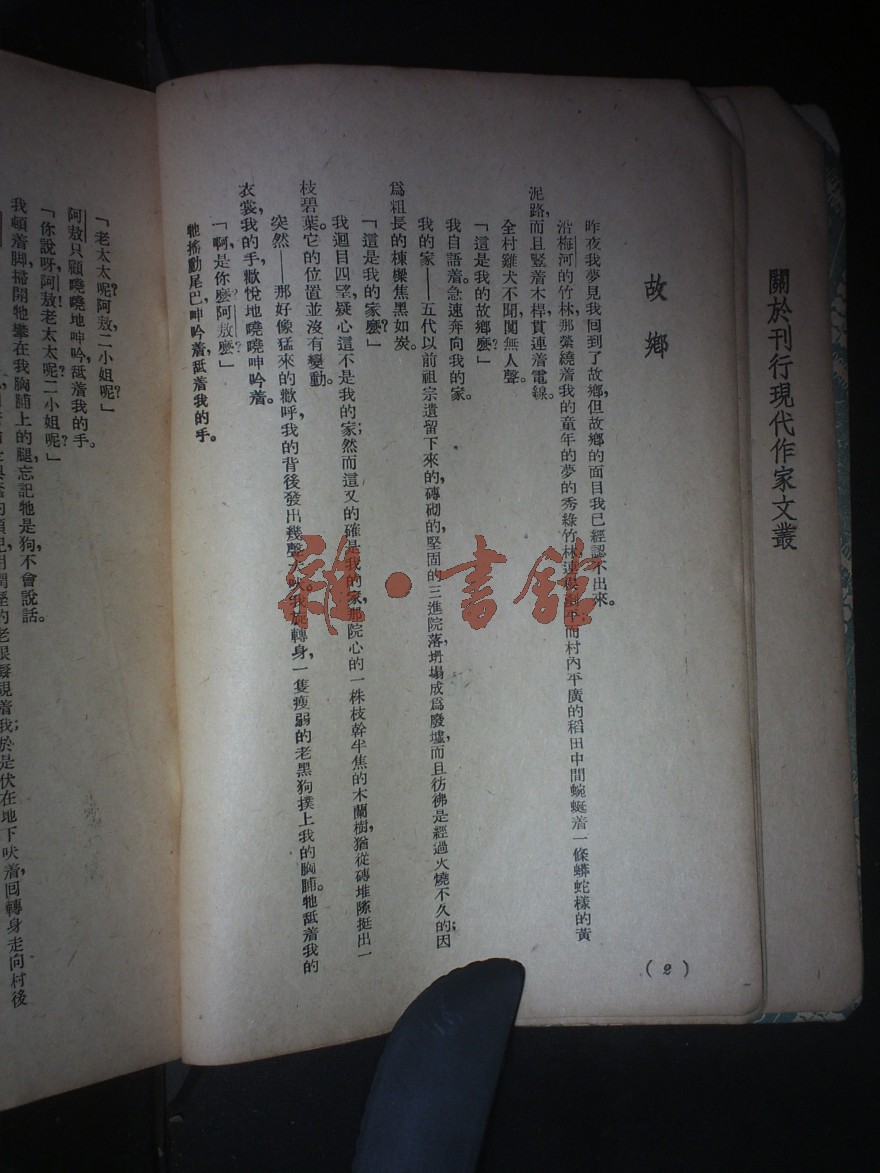 關於刊行現代作家文叢
故鄉
昨夜我夢見我回到了故鄉,但故鄉的面目我已經認不出來。
沿梅河的竹林,那縈繞着我的童年的夢的秀綠竹林,連 平而村內平廣的稻田中間蜿蜒着一條蟒蛇樣的黃
泥路,而且竪着木桿,貫連着電線。
全村雞犬不聞,闃無人聲。
「這是我的故鄉麽?」
我自語着。急速奔向我的家。
我的家——五代以前祖宗遺留下來的,磚砌的堅固的三進院落坍塌成爲廢墟,而且彷彿是經過火燒不久的;因
爲粗長的棟樑焦黑如炭。
「這是我的家麽?」
我迴目四望,疑心這不是我的家;然而這又的確是我的家,那院心的一株枝幹半焦的木蘭樹,猶從磚堆隙挺出一
枝碧葉。它的位置並沒有變動。
突然——那好像猛來的歡呼,我的背後發出幾聲犬吠。我旋轉身,一隻瘦弱的老黑狗撲上我的胸脯。牠舐着我的
衣裳,我的手,歡悅地嘵嘵呻吟着。
「啊,是你麽?阿敖麽?」
牠搖動尾巴,呻吟着,舐着我的手。
(2)
「老太太呢?阿敖,二小姐呢?」
阿敖只顧嘵嘵地呻吟,舐着我的手。
「你說呀,阿敖!老太太呢?二小姐呢?」
我頓着脚,掃開牠攀在我胸脯上的腿,忘記牠是狗,不會說話。
的老眼凝視着我;於是伏在地下吠着,回轉身走向村後
雜·書館